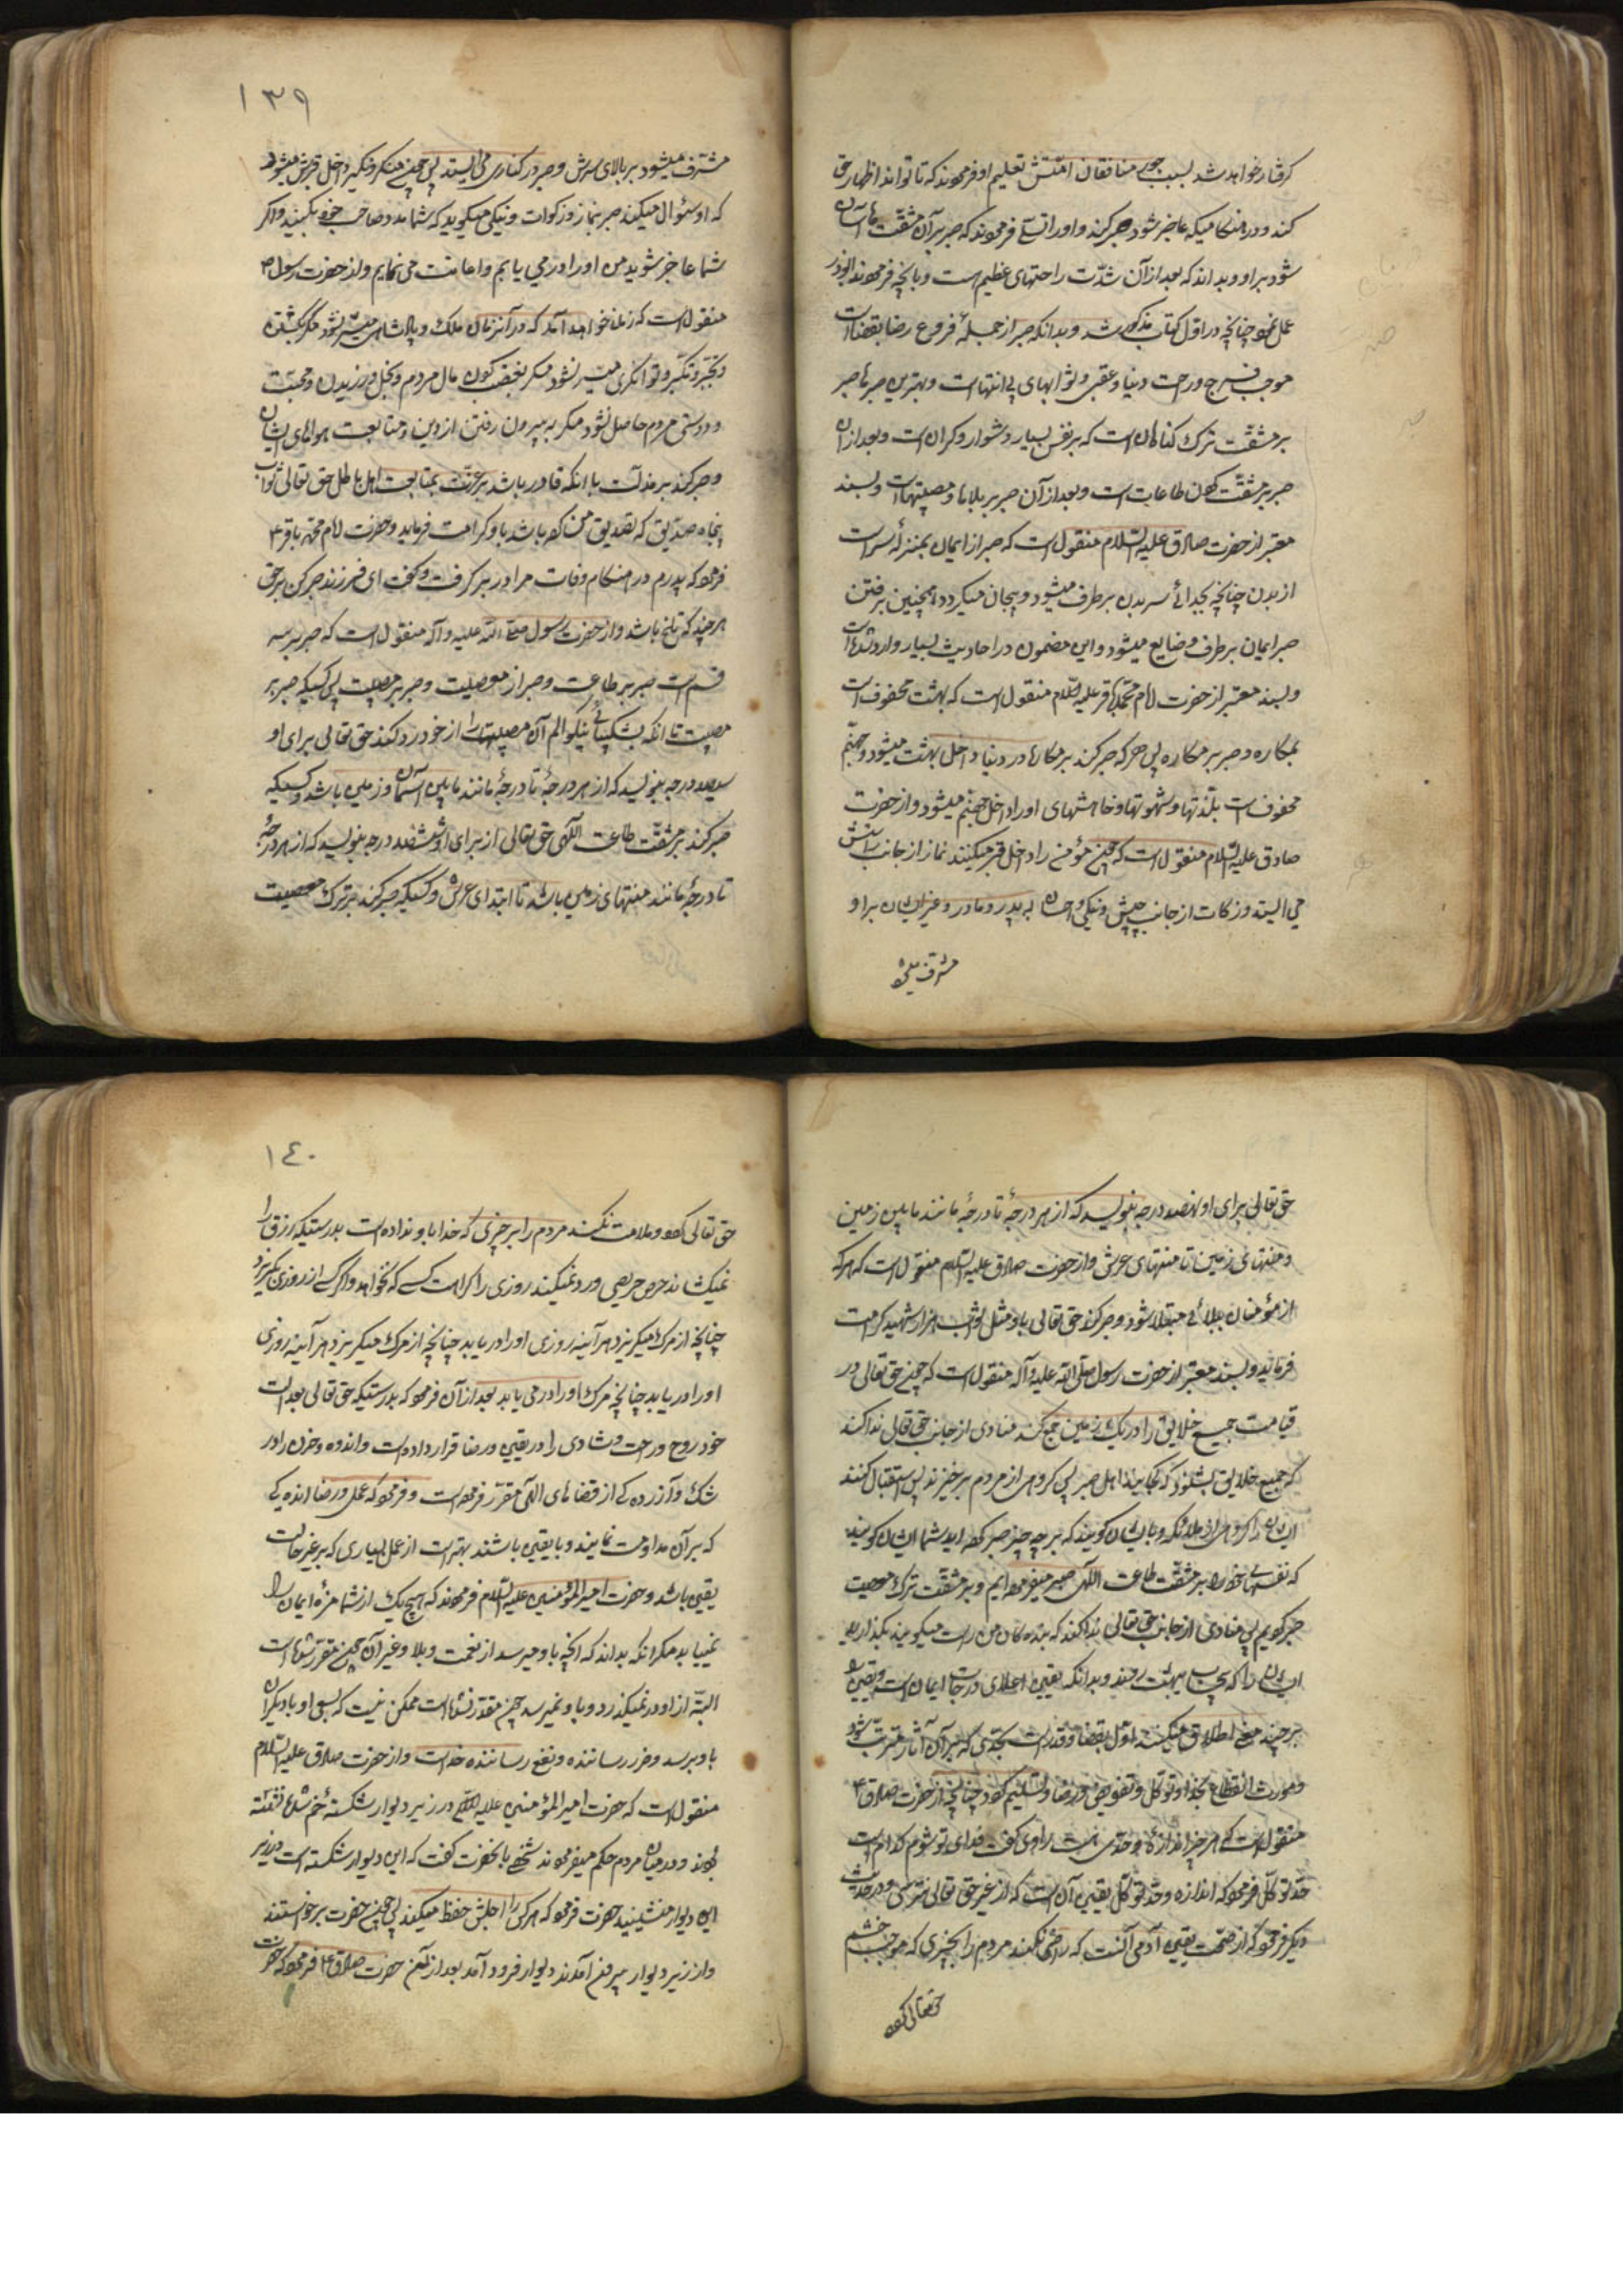 گرفتار خواهد شد بسبب جور منافقان امتش تعلیم او فرمودند که تا تواند اظهار حق
کند و در هنگامیکه عاجز شود صبر کند و او را تسلی فرمودند که صبر بر آن مشقت ها آسان
شود بر او و بداند که بعد از آن شدت راحتهای عظیم است و بآنچه فرمودند ابوذر
عمل نمود چنانچه در اول کتاب مذکور شد و بدانکه صبر از جملهٔ فروع رضا بقضا است
موجب فرج و راحت دنیا و عقبی و ثوابهای بی انتها است و بهترین صبرها صبر
بر مشقت ترک گناهان است که بر نفس بسیار دشوار و گران است و بعد از آن
صبر بر مشقت کردن طاعات است و بعد از آن صبر بر بلاها و مصیبتها است و بسند
معتبر از حضرت صادق علیه السلام منقول است که صبر از ایمان بمنزلهٔ سر است
از بدن چنانچه بجدائی سر بدن برطرف میشود و بیجان میگردد همچنین برفتن
صبر ایمان برطرف و ضایع میشود و این مضمون در احادیث بسیار وارد شده است
و بسند معتبر از حضرت امام محمد باقر علیه السلام منقول است که بهشت محفوف است
بمکاره و صبر بر مکاره پس هر که صبر کند بر مکارها در دنیا داخل بهشت میشود و جهنم
محفوف است بلذتها و شهوتها و خاهشهای او را داخل جهنم میشود و از حضرت
صادق علیه السلام منقول است که چون مؤمن را داخل قبر میکنند نماز از جانب راستش
می ایستد و زکات از جانب چپش و نیکی و احسان به پدر و مادر و غیر ایشان بر او
مشرف میشود
۱۳۹
مشرف میشود بر بالای سرش و صبر در کناری می ایستد پس چون منکر و نکیر داخل قبرش میشود
که او سئوال میکنند صبر بنماز و زکوات و نیکی میگوید که شما مدد صاحب خود بکنید و اگر
شما عاجز شوید من او را در می یابم و اعانت می نمایم و از حضرت رسول ص
منقول است که زمانی خواهد آمد که در آنزمان ملک و پادشاهی میسر نشود مگر بکشتن
و تجبر و تکبر و توانگری میسر نشود مگر بغضب کردن مال مردم و بخل ورزیدن و محبت
و دوستی مردم حاصل نشود مگر به بیرون رفتن از دین و متابعت هواهای ایشان
و صبر کند بر مذلت با آنکه قادر باشد بر عزت بمتابعت اهل باطل حق تعالی ثواب
پنجاه صدیق که تصدیق من کرده باشد باو کرامت فرماید و حضرت امام محمد باقر ع
فرمود که پدرم در هنگام وفات مرا در بر گرفت و گفت ای فرزند صبر کن بر حق
هر چند که تلخ باشد و از حضرت رسول صلی الله علیه و آله منقول است که صبر بر سه
قسم است صبر بر طاعت و صبر از معصیت و صبر بر مصیبت پس کسیکه صبر بر
مصیبت تا آنکه بشکیبائی نیکو الم آن مصیبتها را از خود رد کند حق تعالی برای او
سیصد درجه بنویسد که از هر درجهٔ تا درجهٔ مانند مابین آسمان و زمین باشد و کسیکه
صبر کند بر مشقت طاعت الهی حق تعالی از برای او ششصد درجه بنویسد که از هر درجهٔ
تا درجهٔ مانند منتهای زمین باشد تا ابتدای عرش و کسیکه صبر کند بر ترک معصیت
حق تعالی برای او نهصد درجه بنویسد که از هر درجهٔ تا درجهٔ مانند مابین زمین
و منتهای زمین تا منتهای عرش و از حضرت صادق علیه السلام منقول است که هر که
از مؤمنان ببلائی مبتلا شود و صبر کند حق تعالی باو مثل ثواب هزار شهید کرامت
فرماید و بسند معتبر از حضرت رسول صلی الله علیه و آله منقول است که چون حق تعالی در
قیامت جمیع خلایق را در یک زمین جمع کند منادی از جانب حق تعالی ندا کند
که جمیع خلایق بشنوند که کجایند اهل صبر پس گروهی از مردم برخیزند پس استقبال کنند
ایشان را گروهی از ملائکه و بایشان گویند که بر چه چیز صبر کرده اید شما ایشان گویند
که نفسهای خود را بر مشقت طاعت الهی صبر میفرموده ایم و بر مشقت ترک معصیت
صبر کردیم پس منادی از جانب حق تعالی ندا کند که بنده گان من راست میگویند بگذارید
ایشان را که بی حساب ببهشت روند و بدانکه یقین اعلای درجات ایمان است و یقین را
بر چند معنی اطلاق میکنند اول یقین بقضا و قدر است بحدی که بر آن آثار مترتب شود
و مورث انقطاع بخدا و توکل و تفویض و رضا و تسلیم گردد چنانچه از حضرت صادق ع
منقول است که هر چیز اندازهٔ و حدی هست راوی گفت فدای تو شوم کدام است
حد توکل فرمود که اندازه و حد توکل یقین آن است که از غیر حق تعالی نترسی و در حدیث
دیگر فرمود که از صحت یقین آدمی آنست که راضی نکند مردم را بچیزی که موجب خشم
حق تعالی گردد
۱۴۰
حق تعالی گردد و ملامت نکند مردم را بر چیزی که خدا باو نداده است بدرستیکه رزق را
نمیکشاند حرص حریصی و رد نمیکند روزی را کراهت کسی که نخواهد و اگر کسی از روزی بگریزد
چنانچه از مرگ میگریزد هر آینه روزی او را دریابد چنانچه از مرگ میگریزد هر آینه روزی
او را دریابد چنانچه مرگ او را در می یابد بعد از آن فرمود که بدرستیکه حق تعالی بعدالت
خود روح و راحت و شادی را در یقین و رضا قرار داده است و اندوه و حزن را در
شک و آزرده گی از قضاهای الهی مقرر فرموده است و فرمود که عمل و رضا اندکی
که بر آن مداومت نمایند و با یقین باشند بهتر است از عمل بسیاری که بر غیر حالت
یقین باشد و حضرت امیر المؤمنین علیه السلام فرمودند که هیچ یک از شما مزهٔ ایمان را
نمییابد مگر آنکه بداند که آنچه باو میرسد از نعمت و بلا و غیر آن چون مقرر شده است
البته از او در نمیگذرد و باو نمیرسد چون مقدر نشده است ممکن نیست که بسعی او یا دیگران
باو برسد و ضرر رساننده و نفع رساننده خداست و از حضرت صادق علیه السلام
منقول است که حضرت امیر المؤمنین علیه السلام در زیر دیوار شکستهٔ خم شده نشسته
بودند و در میان مردم حکم میفرمودند شخصی بآنحضرت گفت که این دیوار شکسته است در زیر
این دیوار منشینید حضرت فرمود که هر کس را اجلش حفظ میکند پس چون حضرت برخواستند
و از زیر دیوار بیرون آمدند دیوار فرود آمد بعد از آن حضرت صادق ع فرمود که حضرت